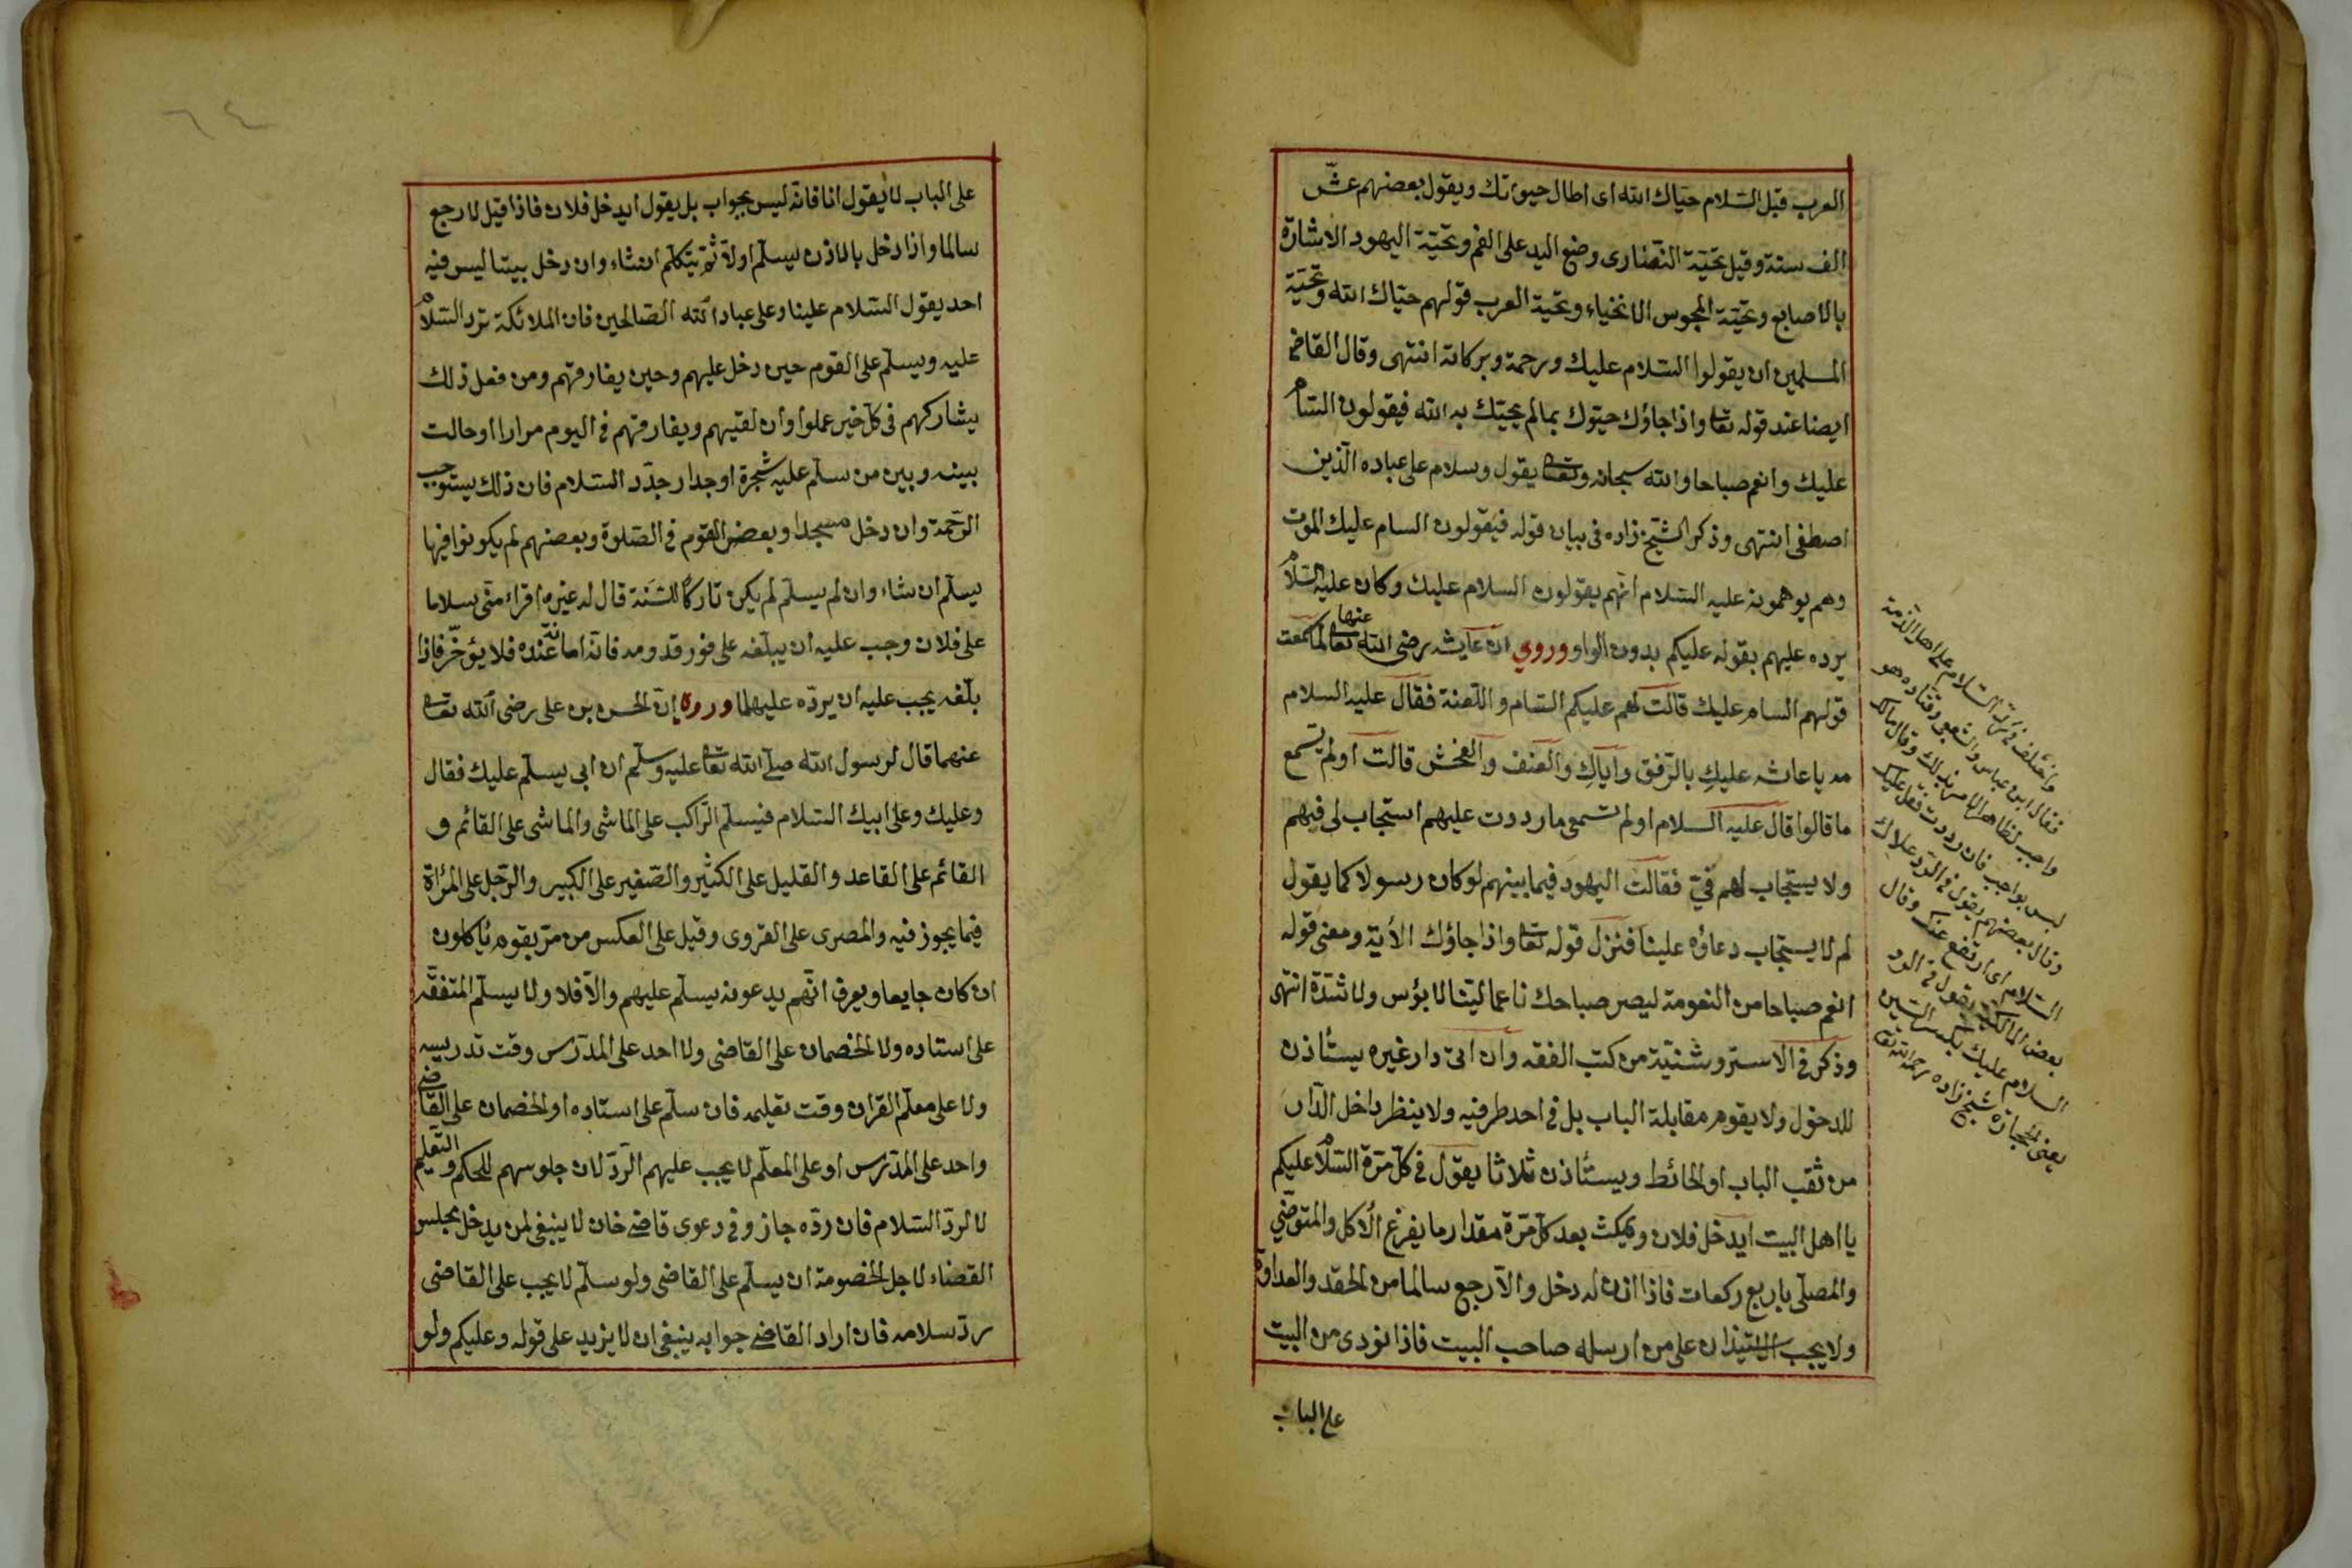 العرب قبل السّلام حيّاك الله اى اطال حيوتك ويقول بعضهم عش
الف سنة وقيل تحيّة النّصارى وضع اليد على الفم وتحيّة اليهود الاشارة
بالاصابع وتحيّة المجوس الانحناء وتحيّة العرب قولهم حيّاك الله وتحيّة
المسلمين ان يقولوا السّلام عليك ورحمة وبركاته انتهى وقال القاضى
ايضا عند قوله تعا واذا جاؤك حيّوك بمالم يحيّك به الله فيقولون السّام
عليك وانعم صباحا والله سبحانه وتعا يقول وسلام على عباده الّذين
اصطفى انتهى وذكر الشّيخ زاده فى بيان قوله فيقولون السام عليك الموت
وهم يوهمونه عليه السّلام انّهم يقولون السلام عليك وكان عليه السّلام
يرده عليهم بقوله عليكم بدون الواو وروي ان عايشه رضى الله تعا عنها لما سمعت
قولهم السام عليك قالت لهم عليكم السّام واللّعنة فقال عليه السلام
مه يا عاشه عليكِ بالرّفق واياكِ والعنف والفحش قالت اولم تسمع
ما قالوا قال عليه السلام اولم تسمعى ما رددت عليهم استجاب لى فيهم
ولا يستجاب لهم فيّ فقالت اليهود فيما بينهم لو كان رسولا كما يقول
لم لا يستجاب دعاؤه علينا فنزل قوله تعا واذا جاؤك الأية ومعنى قوله
انعم صباحا من النعومة ليصر صباحك ناعما ليّنا لا بؤس ولا شدّة انتهى
وذكر فى الاستروشنيّة من كتب الفقه وان اتى دار غيره يستأذن
للدخول ولا يقوم مقابلة الباب بل فى احد طرفيه ولا ينظر داخل الدّار
من ثقب الباب او الحائط ويستأذن ثلاثا يقول فى كلّ مرّة السّلام عليكم
يا اهل البيت ايدخل فلان ويمكث بعد كلّ مرّة مقدار ما يفرغ الأكل والمتوضّي
والمصلّى باربع ركعات فاذا اذن له دخل والّا رجع سالما من الحقد والعداوة
ولا يجب الاستيذان على من ارسله صاحب البيت فاذا نودى من البيت
على الباب
واختلف فى ردّ السّلام على اهل الذّمة
فقال ابن عباس والشعبى وقتاده هو
واجب لظاهر الامر بذلك وقال مالك
ليس بواجب فان رددت فقل عليك
وقال بعضهم يقول فى الردّ علاك
السّلام اى ارتفع عنك وقال
بعض المالكية يقول فى الرد
السلام عليك بكسر السّين
يعنى الحجارة شيخ زاده رحمه الله تعا
٦٤
على الباب لا يقول انا فانّه ليس بجواب بل يقول ايدخل فلان فاذا قيل لا رجع
سالما واذا دخل بالاذن يسلّم اولاً ثمّ يتكلّم ان شاء وان دخل بيتا ليس فيه
احد يقول السّلام علينا وعلى عباد الله الصّالحين فان الملائكة تردّ السّلام
عليه ويسلّم على القوم حين دخل عليهم وحين يفارقهم ومن فعل ذلك
يشاركهم فى كلّ خير عملوا وان لقيهم ويفارقهم فى اليوم مرارا او حالت
بينه وبين من سلّم عليه شجرة او جدار جدّد السّلام فان ذلك يستوجب
الرّحمة وان دخل مسجدا وبعض القوم فى الصّلوة وبعضهم لم يكونوا فيها
يسلّم ان شاء وان لم يسلّم لم يكن تاركا للسّنة قال له غيره اقراء منّى سلاما
على فلان وجب عليه ان يبلّغه على فور قدومه فانّه امانة عنده فلا يؤخّر فاذا
بلّغه يجب عليه ان يردّه عليهما وروى إنّ الحسن بن على رضى الله تعا
عنهما قال لرسول الله صلّى الله تعا عليه وسلّم ان ابى يسلّم عليك فقال
وعليك وعلى ابيك السّلام فيسلّم الرّاكب على الماشى والماشى على القائم و
القائم على القاعد والقليل على الكثير والصّغير على الكبير والرّجل على المرأة
فيما يجوز فيه والمصرى على القروى وقيل على العكس من مرّ بقوم يأكلون
ان كان جايعا ويعرف انّهم يدعونه يسلّم عليهم والّا فلا ولا يسلّم المتفقّه
على استاده ولا الخصمان على القاضى ولا احد على المدرّس وقت تدريسه
ولا على معلّم القرآن وقت تعليمه فان سلّم على استاده او الخصمان على القاضى
واحد على المدرّس او على المعلّم لا يجب عليهم الرّدّ لان جلوسهم للحكم والتّعليم
لا لردّ السّلام فان ردّه جاز وفى دعوى قاضى خان لا ينبغى لمن يدخل مجلس
القضاء لاجل الخصومة ان يسلّم على القاضى ولو سلّم لا يجب على القاضى
ردّ سلامه فان اراد القاضى جوابه ينبغى ان لا يزيد على قوله وعليكم ولو